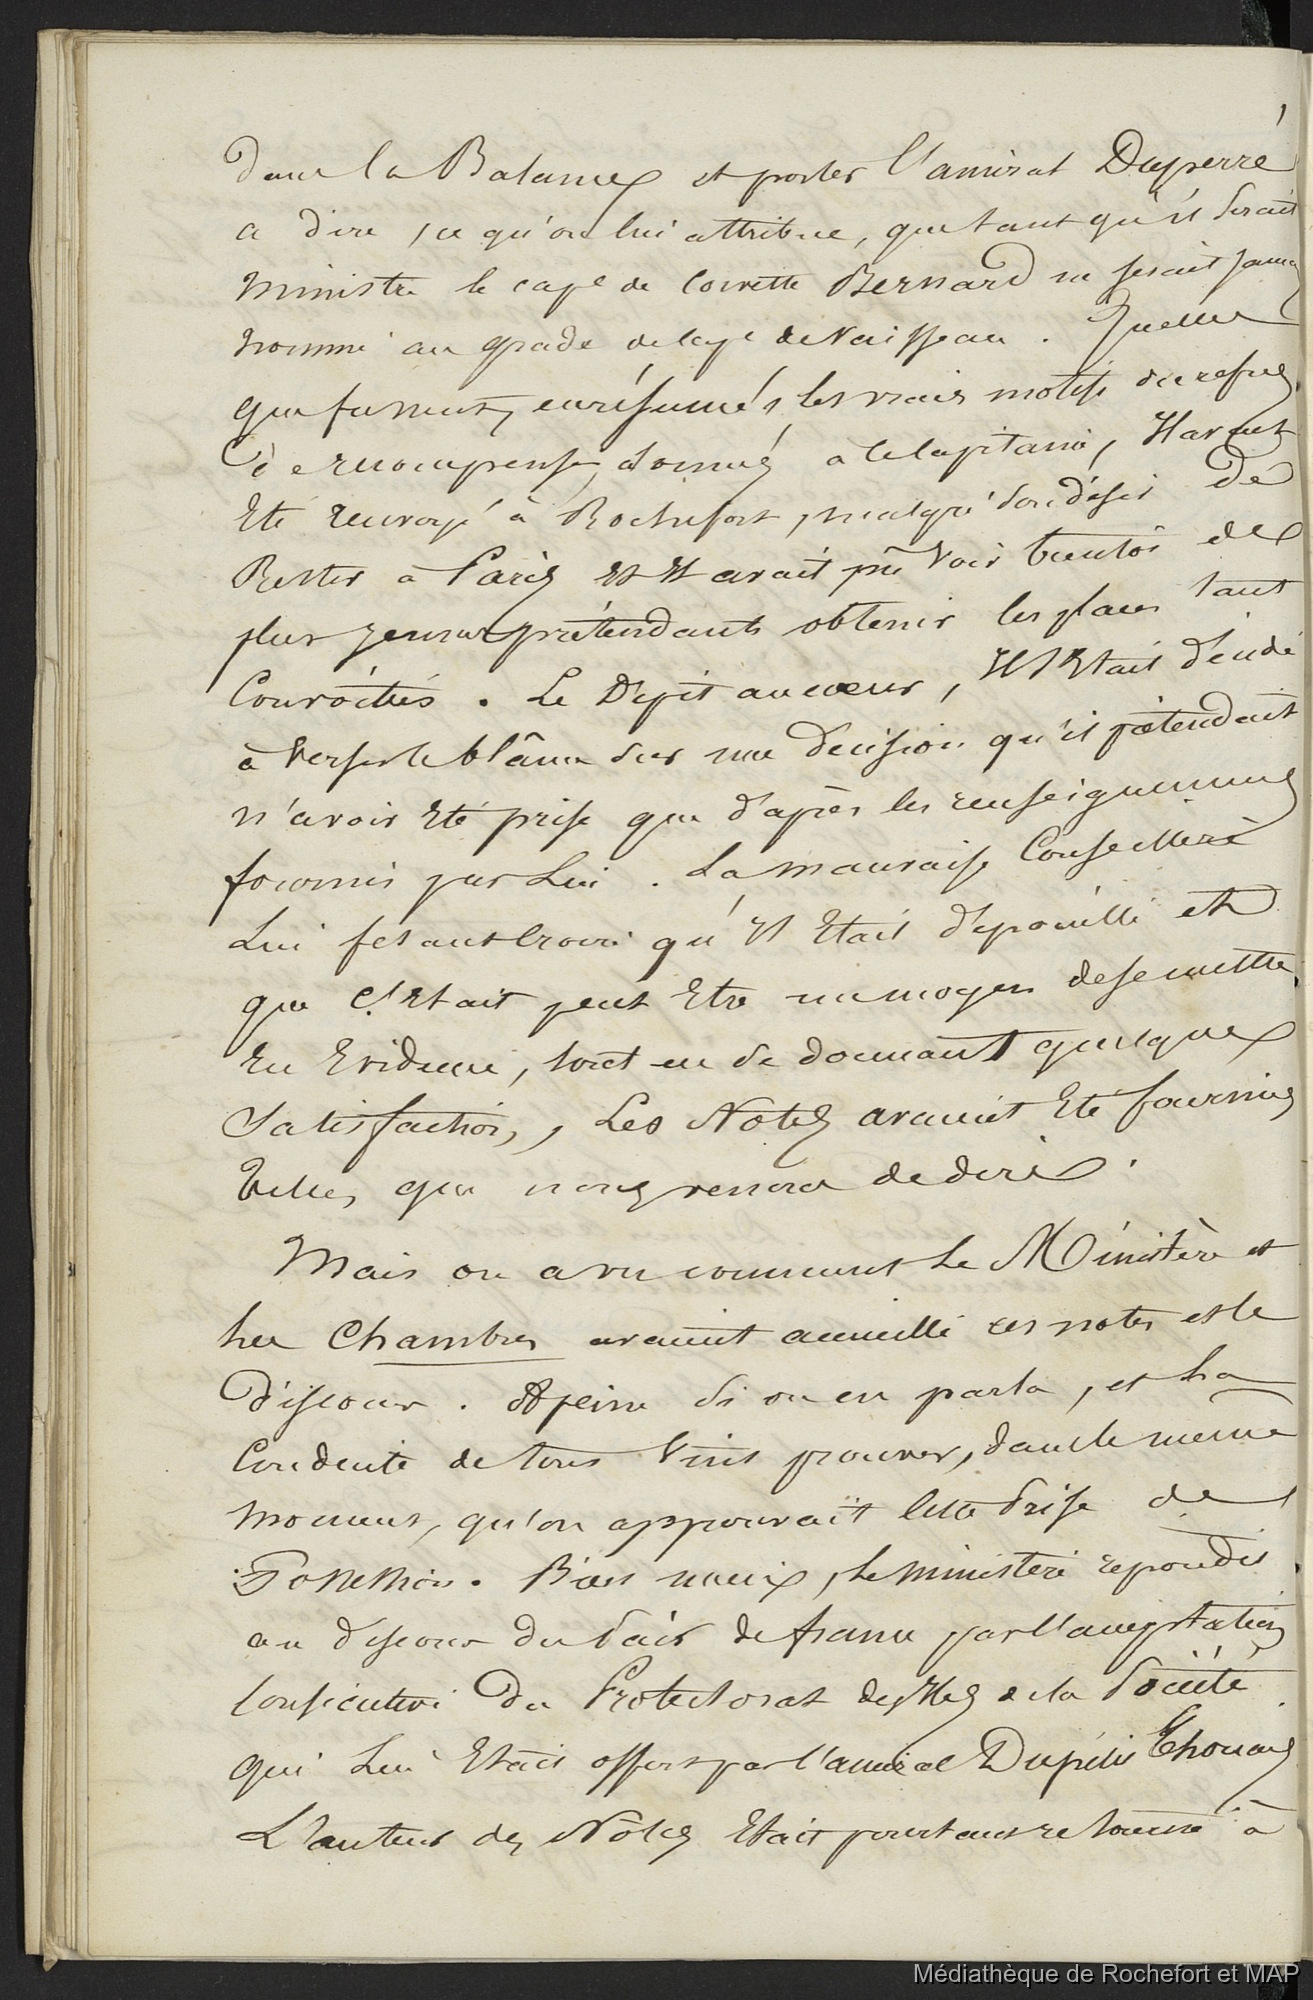 dans la Balance et porter l'amiral Duperré
a dire, ce qu'on lui attribue, que tant qu'il serait
Ministre le cape de Corvette Bernard ne serait jamais
nommé au grade de cape de Vaisseau. Quelles
que fussent, en résumé, les vrais motifs du refus
de récompense donnés à ce Capitaine, Il avait
Eté renvoyé à Rochefort, malgré son désir de
Rester à Paris et Il avait pu voir bientôt de
plus jeunes prétendants obtenir les places tant
Convoitées. Le Dépit au coeur, Il s'Etait décidé
à verser le blâme sur une décision qu'il prétendait
n'avoir Eté prise que d'après les renseignements
fournis par Lui. La mauvaise Conseillère
Lui fesant croire qu'Il Etait dépouillé et
que C'Etait peut Etre un moyen de se mettre
En Evidence, tout en se donnant quelques
Satisfactions, Les Notes avaient Eté fournies
telles que nous venons de dire.
Mais on a vu comment Le Ministère et
les Chambres avaient accueilli ces notes et le
discours. A peine si on en parla, et La
Conduite de tous vint prouver, dans le même
moment, qu'on approuvait cette Prise de
Possession. Bien mieux, Le ministère répondit
au discours du Pair de france par l'acceptation
Consécutive du Protectorat des Iles de la Société
qui Lui Etait offert par l'amiral Dupetit Thouars
L'auteur des Notes Etait pourtant retourné à
Médiathèque de Rochefort et MAP